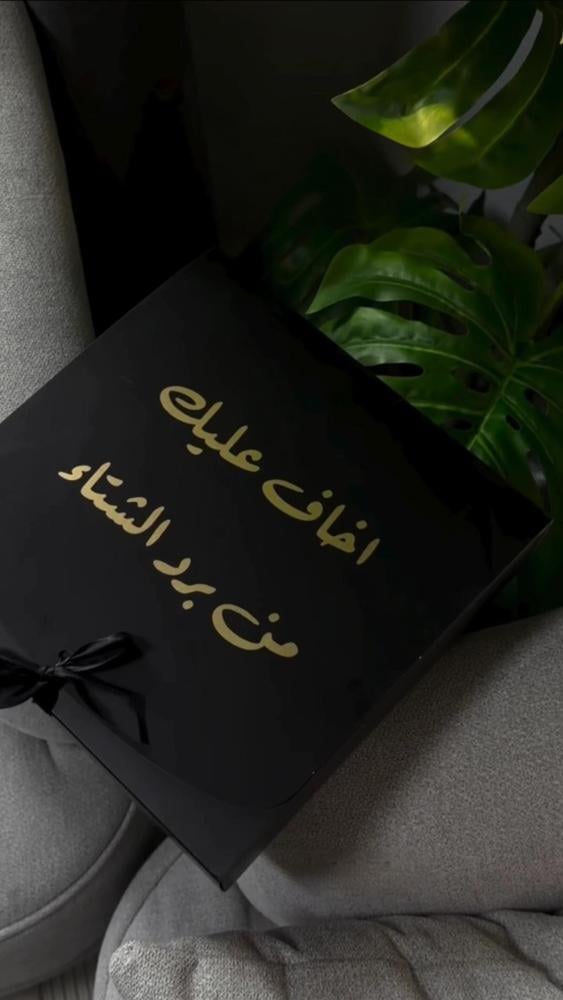 اخاف عليك
من برد الشتاء